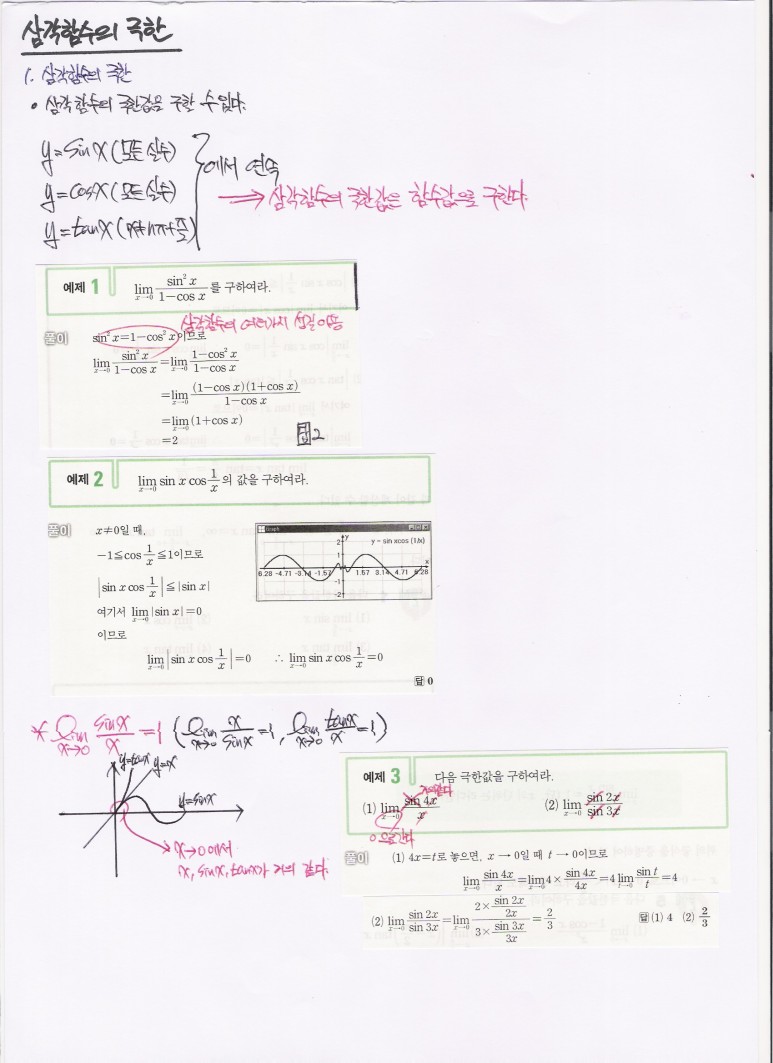 삼각함수의 극한
1. 삼각함수의 극한
• 삼각함수의 극한값을 구할 수 있다.
y=sinx (모든 실수)
y=cosx (모든 실수)
y=tanx (x≠nπ+π/2)
} 에서 연속
⟹ 삼각함수의 극한값은 함수값으로 구한다.
예제 1 lim x→0 sin² x / 1−cos x 를 구하여라.
삼각함수의 여러가지 성질 이용
풀이 sin² x=1−cos² x이므로
lim x→0 sin² x / 1−cos x = lim x→0 1−cos² x / 1−cos x
= lim x→0 (1−cos x)(1+cos x) / 1−cos x
= lim x→0 (1+cos x)
=2
답 2
예제 2 lim x→0 sin x cos 1/x 의 값을 구하여라.
풀이 x≠0일 때,
−1≦cos 1/x ≦1이므로
|sin x cos 1/x| ≦ |sin x|
여기서 lim x→0 |sin x|=0
이므로
lim x→0 |sin x cos 1/x| =0 ∴ lim x→0 sin x cos 1/x =0
답 0
Graph
y = sinxcos (1/x)
y
2
1
6.28 -4.71 -3.14 -1.57 1.57 3.14 4.71 6.28
x
-1
-2
* lim x→0 sinx/x =1 (lim x→0 x/sinx =1, lim x→0 tanx/x =1)
y=tanx y=x
y=sinx
x→0에서
x, sinx, tanx가 거의 같다.
예제 3 다음 극한값을 구하여라.
(1) lim x→0 sin 4x / x (2) lim x→0 sin 2x / sin 3x
0으로간다
풀이 (1) 4x=t로 놓으면, x → 0일 때 t → 0이므로
lim x→0 sin 4x / x = lim x→0 4× sin 4x / 4x = 4 lim t→0 sin t / t =4
(2) lim x→0 sin 2x / sin 3x = lim x→0 2× sin 2x / 2x / 3× sin 3x / 3x = 2/3
답 (1) 4 (2) 2/3